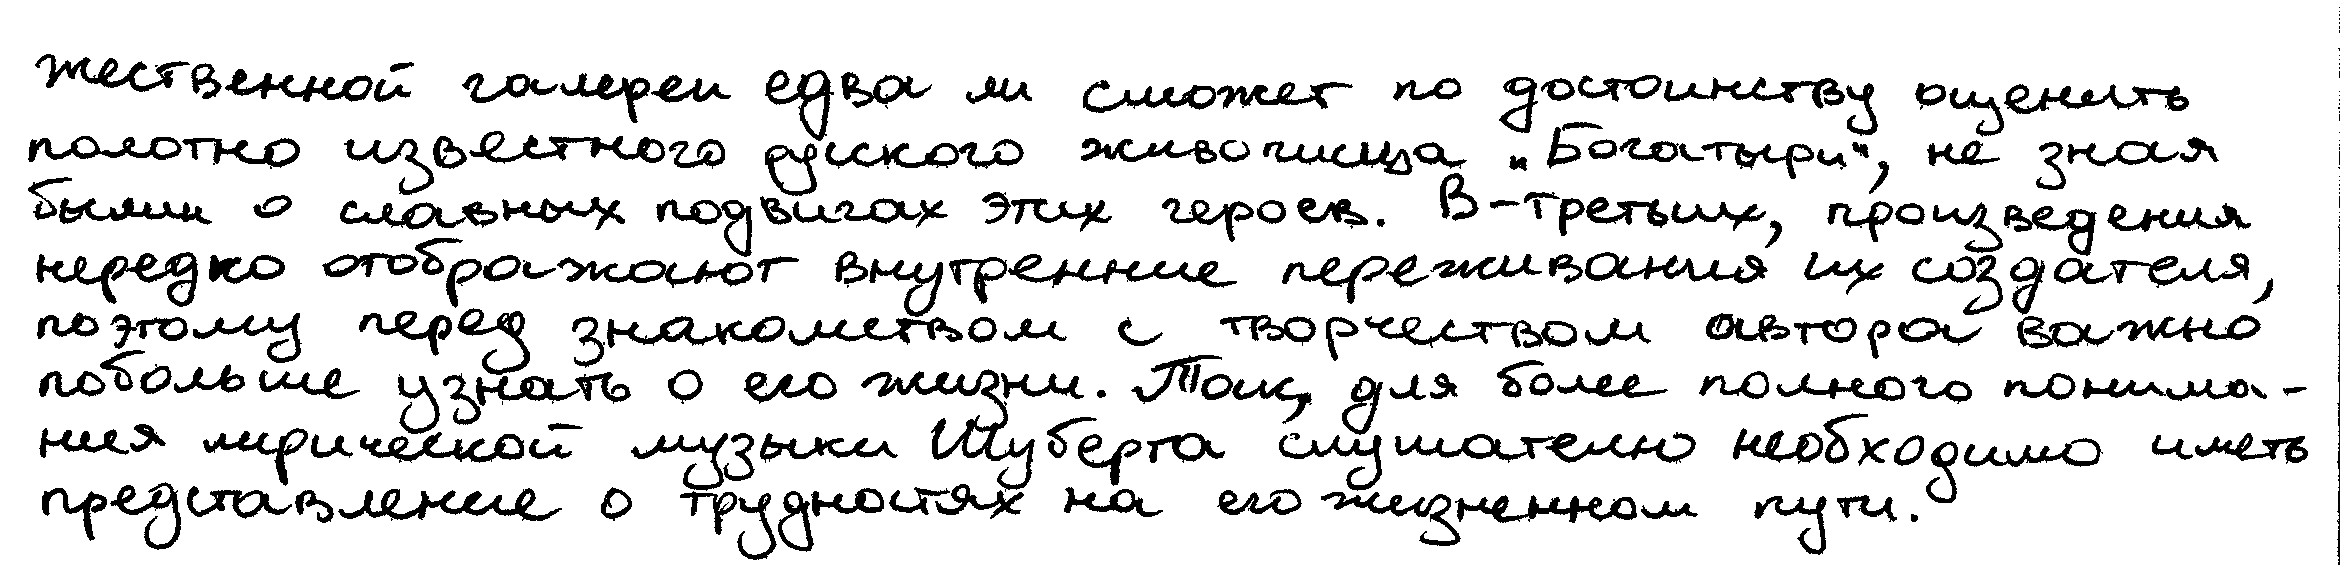 жественной галереи едва ли сможет по достоинству оценить
полотно известного руского живописца „Богатыри“, не зная
былин о славных подвигах этих героев. В-третьих, произведения
нередко отображают внутренние переживания их создателя,
поэтому перед знакомством с творчеством автора важно
побольше узнать о его жизни. Так, для более полного понима-
ния лирической музыки Шуберта слушателю необходимо иметь
представление о трудностях на его жизненном пути.